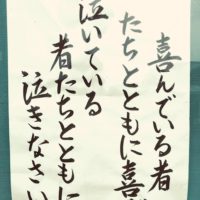 喜んでいる者
たちとともに喜び
泣いている
者たちとともに
泣きなさい